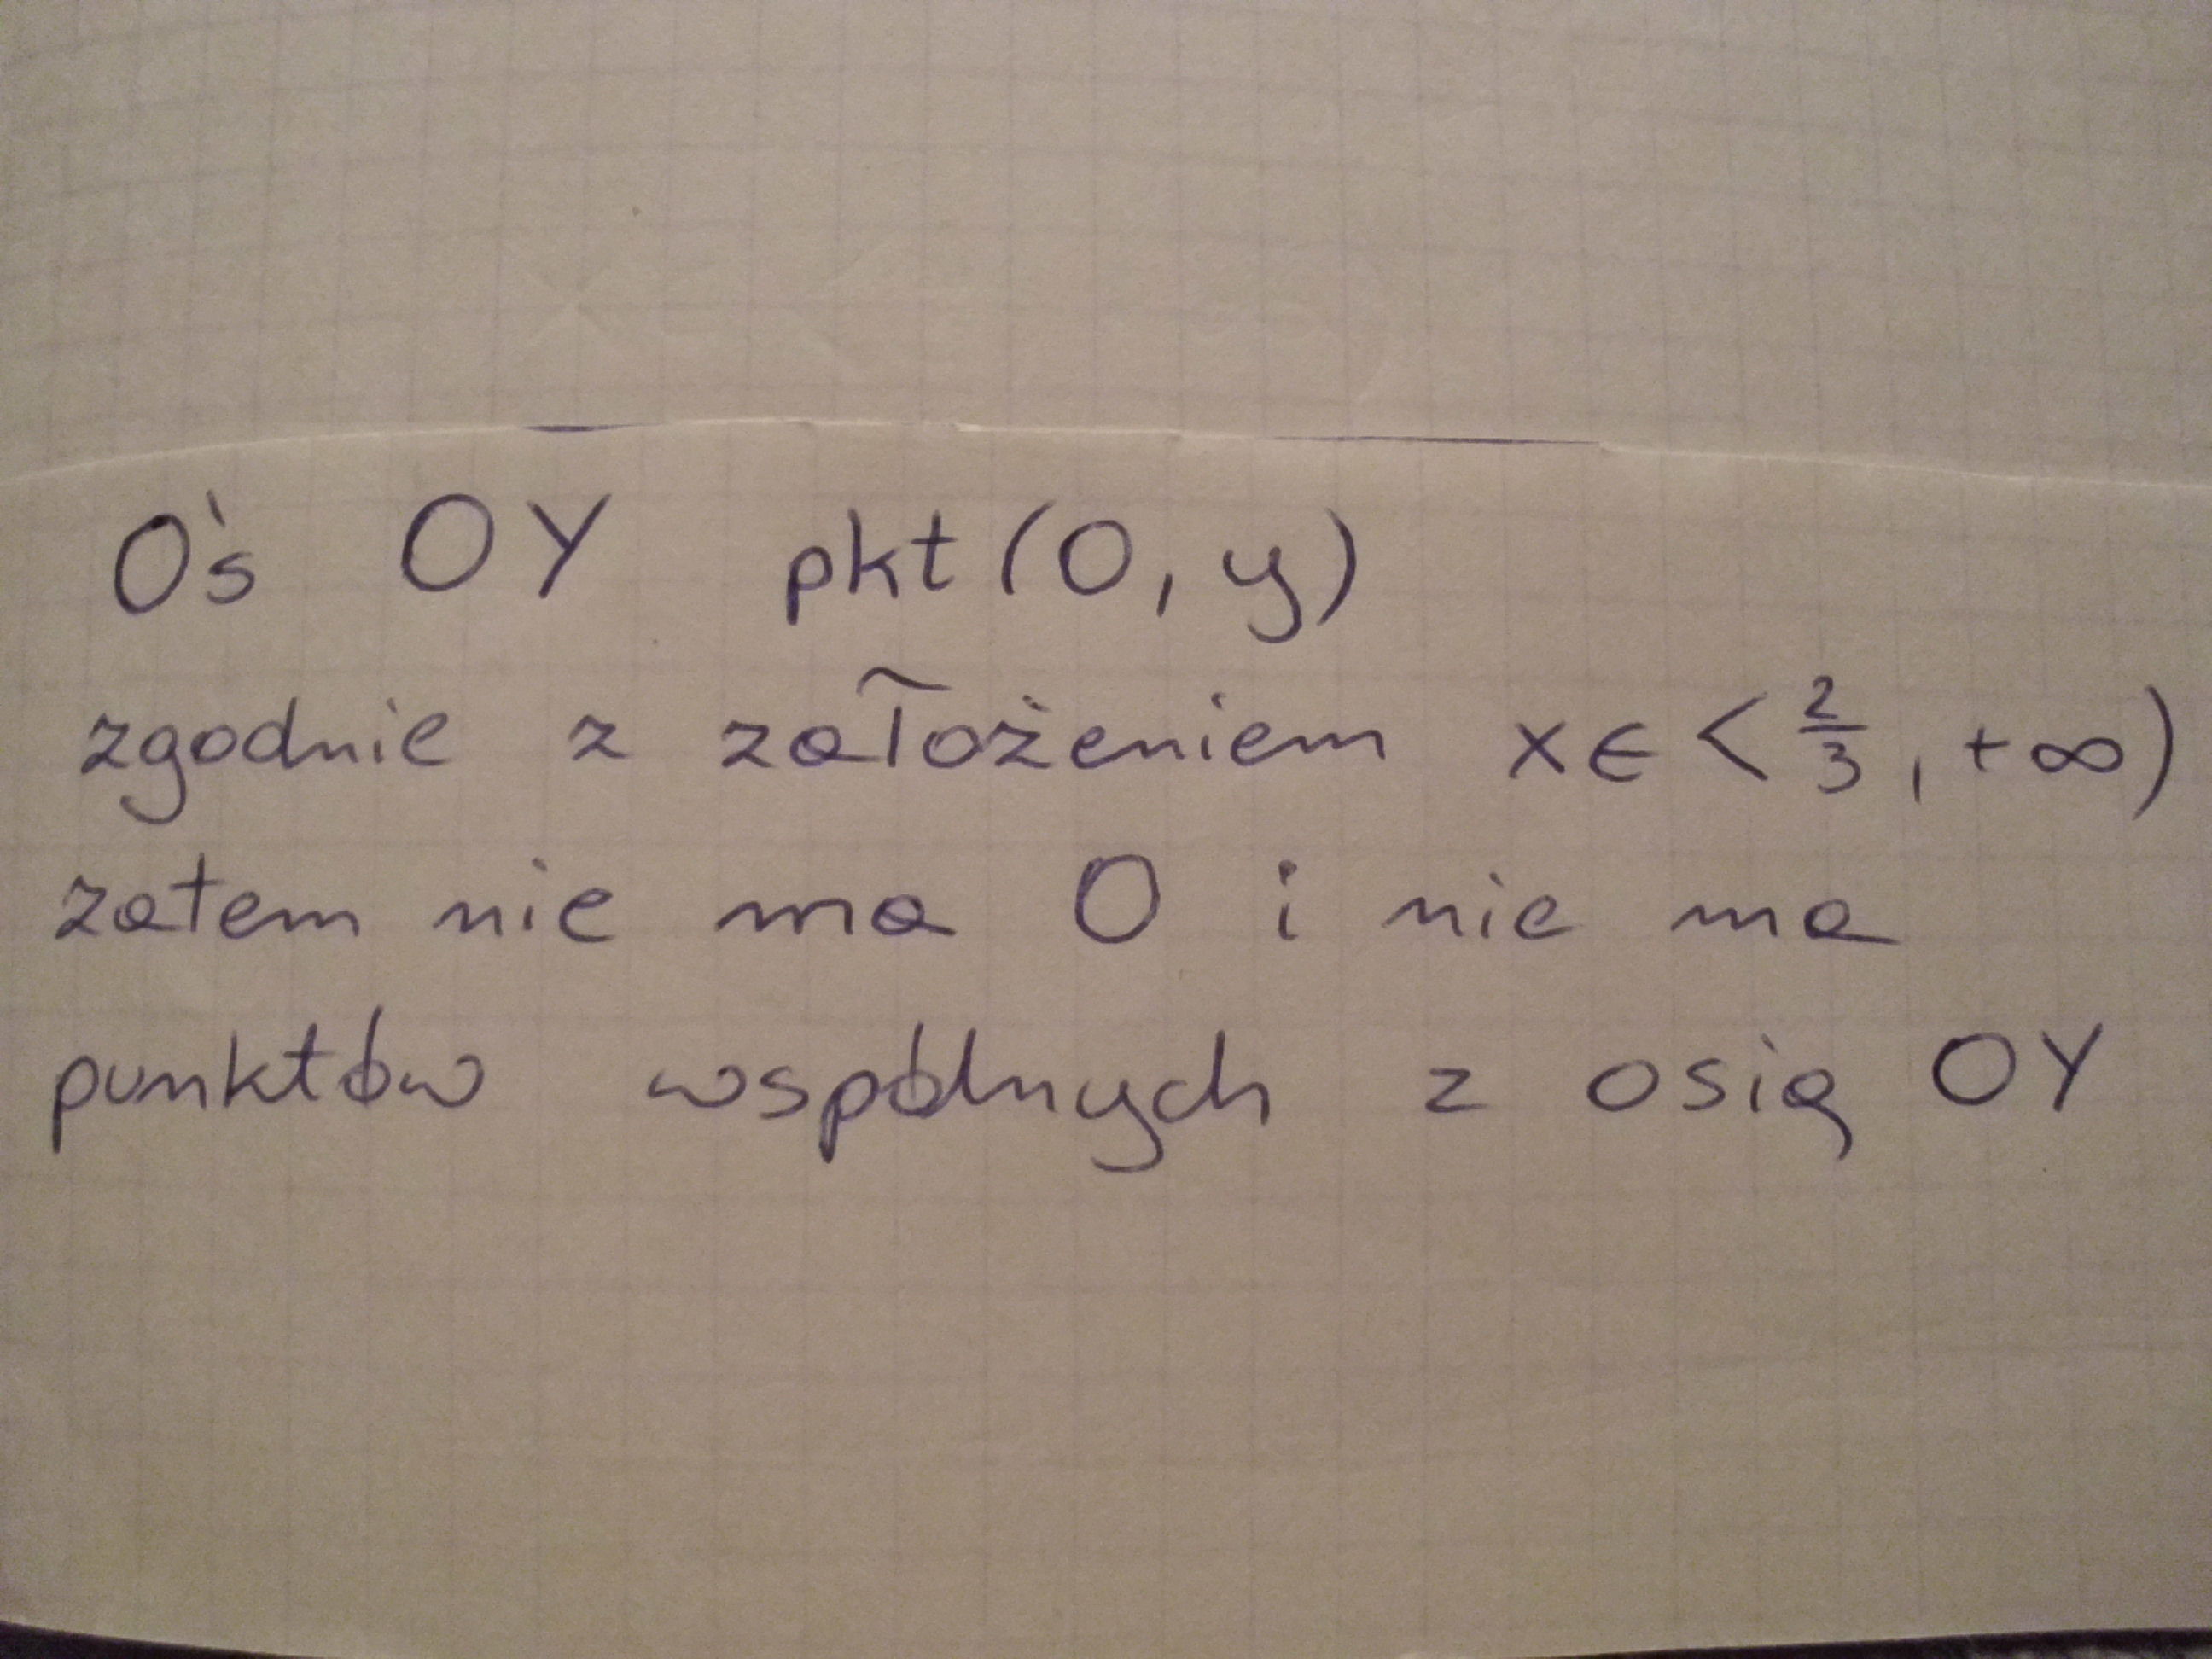 Oś OY pkt (0, y)
zgodnie z założeniem x ∈ < 2/3, +∞)
zatem nie ma 0 i nie ma
punktów wspólnych z osią OY